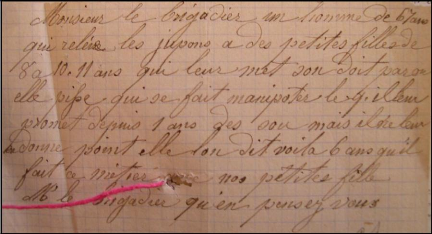 Monsieur le brigadier un homme de 67 ans
qui relève les jupons a des petites filles de
8 a 10. 11 ans qui leur met son doit par ou
elle pisse qui se fait manipoter le il leur
promet depuis 1 ans des sou mais il de leur
donne point elle lon dit voila 6 ans qu'il
fait ce métier nos petites fille
Mr le brigadier qu'en pensez vous